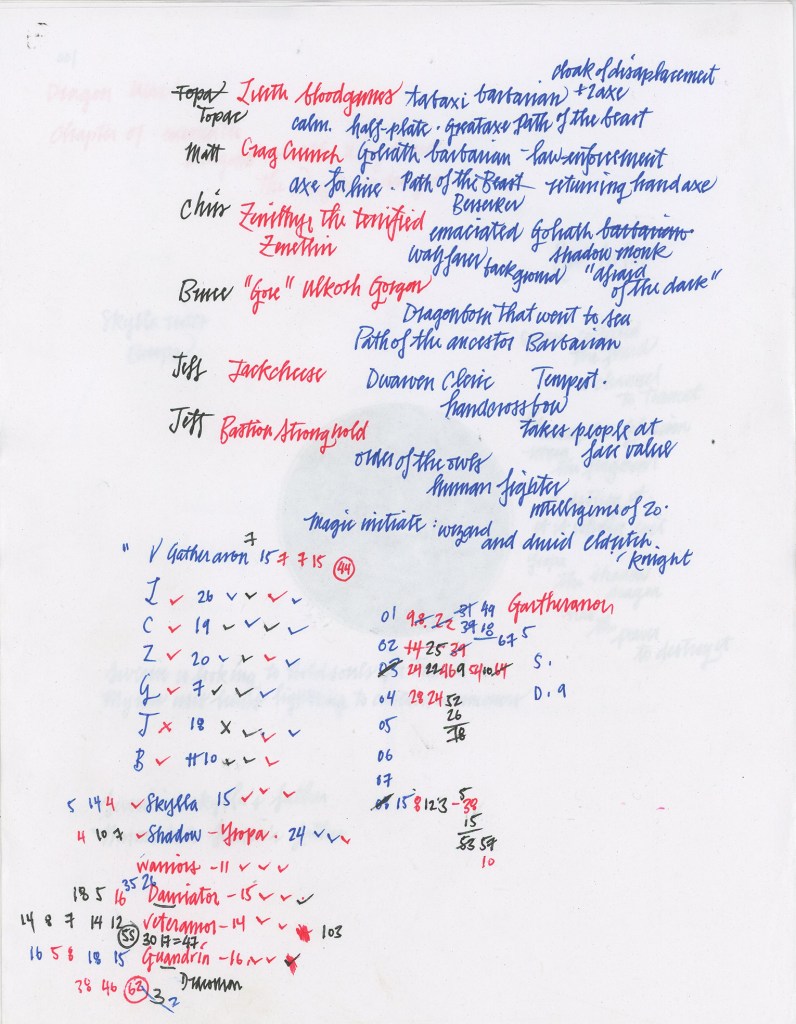 cloak of displacement
Topa Lirith bloodgames tabaxi barbarian +2 axe
Topac calm. half-plate. greataxe Path of the beast
Matt Crag Crunch Goliath barbarian - law enforcement
axe for hire. Path of the Beast returning hand axe
Berserker
Chris the terrified emaciated Goliath barbarian
Zenethin wayfarer background shadow monk
"afraid of the dark"
Bruce "Gore" Ulkosh Gorgon
Dragonborn that went to sea
Path of the ancestor Barbarian
Jeff Jackcheese Dwarven Cleric Tempest.
handcrossbow
Jeff Bastion Stronghold takes people at
face value
order of the owls
human fighter
intelligence of 20.
magic initiate: wizard and druid eldritch
knight
7
" V Gatheraron 15 7 7 15 44
L ✓ 26 ✓ ✓ ✓ ✓
C ✓ 19 ✓ ✓ ✓ ✓
Z ✓ 20 ✓ ✓ ✓ ✓
G ✓ 7 ✓ ✓ ✓ ✓
J x 18 x ✓ ✓ ✓
B ✓ 10 ✓ ✓ ✓
01 98 22 31 49 Gartheranon
39 18
67 5
02 14 25 39
03 24 22 46 9 S.
04 28 24 52 D. 9
26
78
05
06
07
08 15 8 12 3 - 38
5
15
53 59
10
5 14 4 ✓ Skylla 15 ✓ ✓ ✓
4 10 7 ✓ Shadow - Yropa. 24 ✓ ✓ ✓
warriors - 11 ✓ ✓ ✓
35 26
18 5 16 Damiator - 15 ✓ ✓ ✓
14 8 7 14 12 Veteramor - 14 ✓ ✓ 103
55 30 17 = 47
16 5 8 18 15 Guandrin - 16 ✓ ✓ ✓
38 46 62 Draconian
3 2